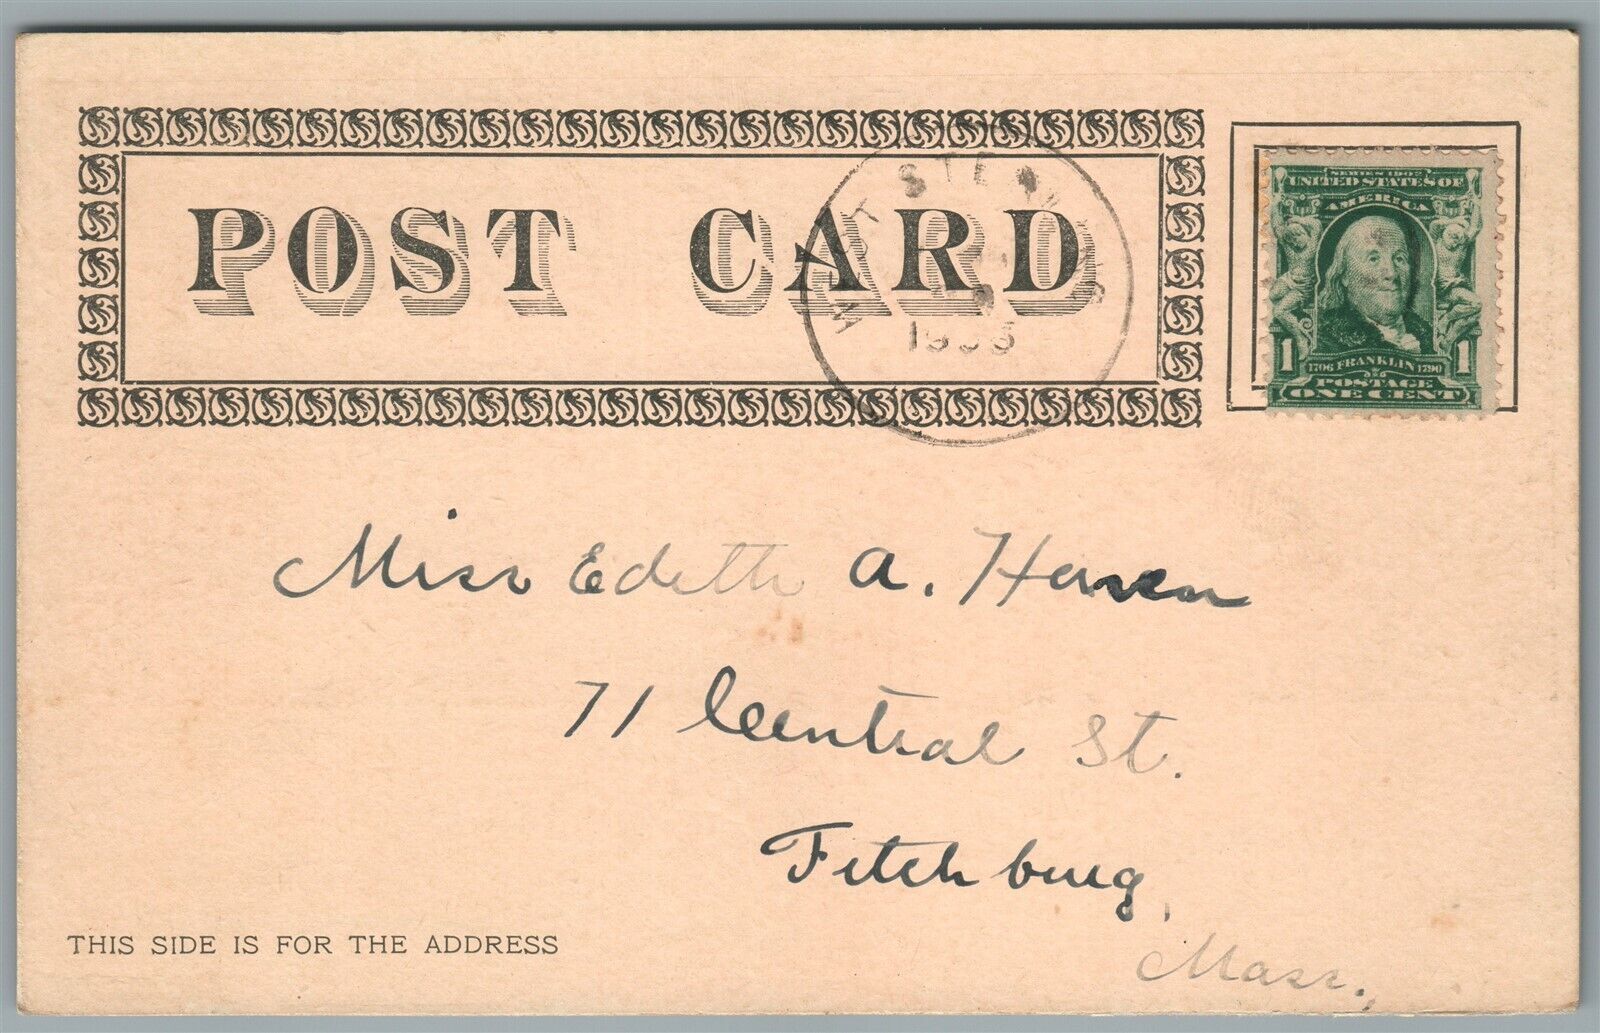 POST CARD
STERLING
SERIES 1902
UNITED STATES OF
AMERICA
1 1706 FRANKLIN 1790 1
POSTAGE
ONE CENT
Miss Edith A. Haven
71 Central St.
Fitchburg,
Mass.
THIS SIDE IS FOR THE ADDRESS